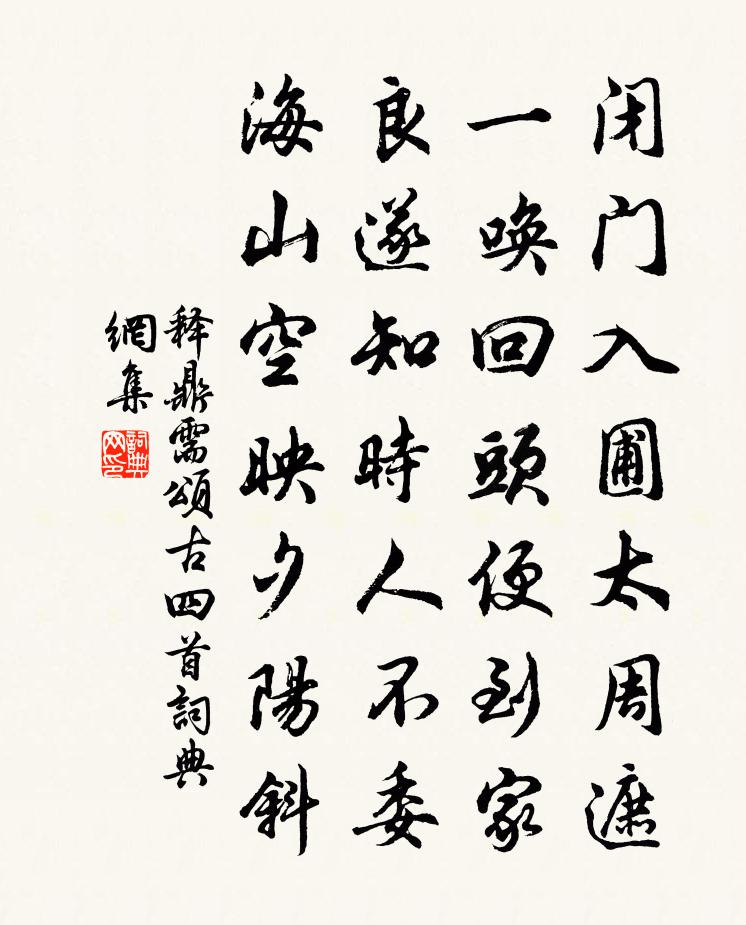 闭门入圃太周遮
一唤回頭便到家
良遂知時人不委
海山空映夕陽斜
释鼎需頌古四首詞典
網集
詞典
网印